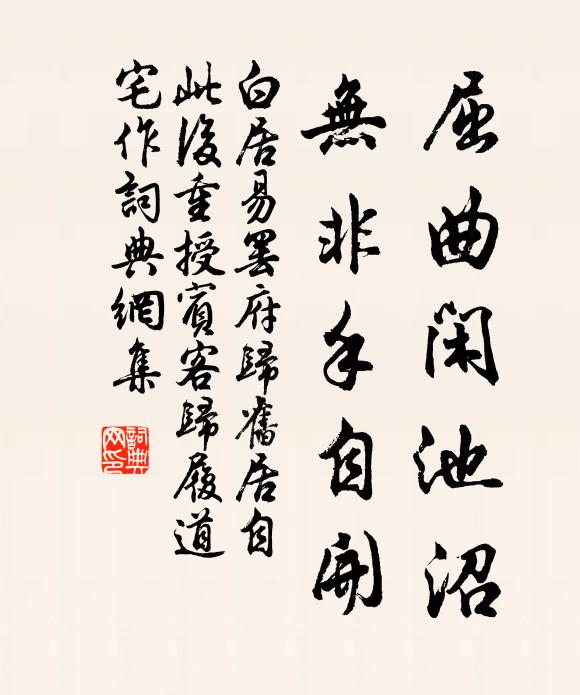 屈曲閑池沼
無非手自開
白居易罷府歸舊居自
此後重授賓客歸履道
宅作詞典網集
詞典
网印